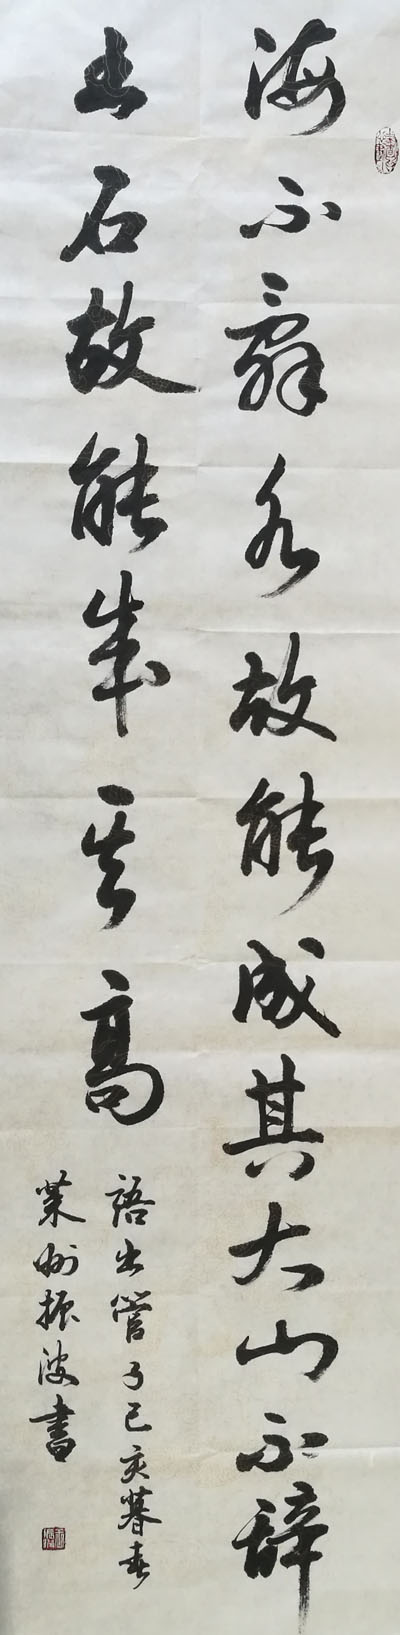 海不辞水故能成其大山不辞
土石故能成其高
語出管子己亥暮春
業州振波書